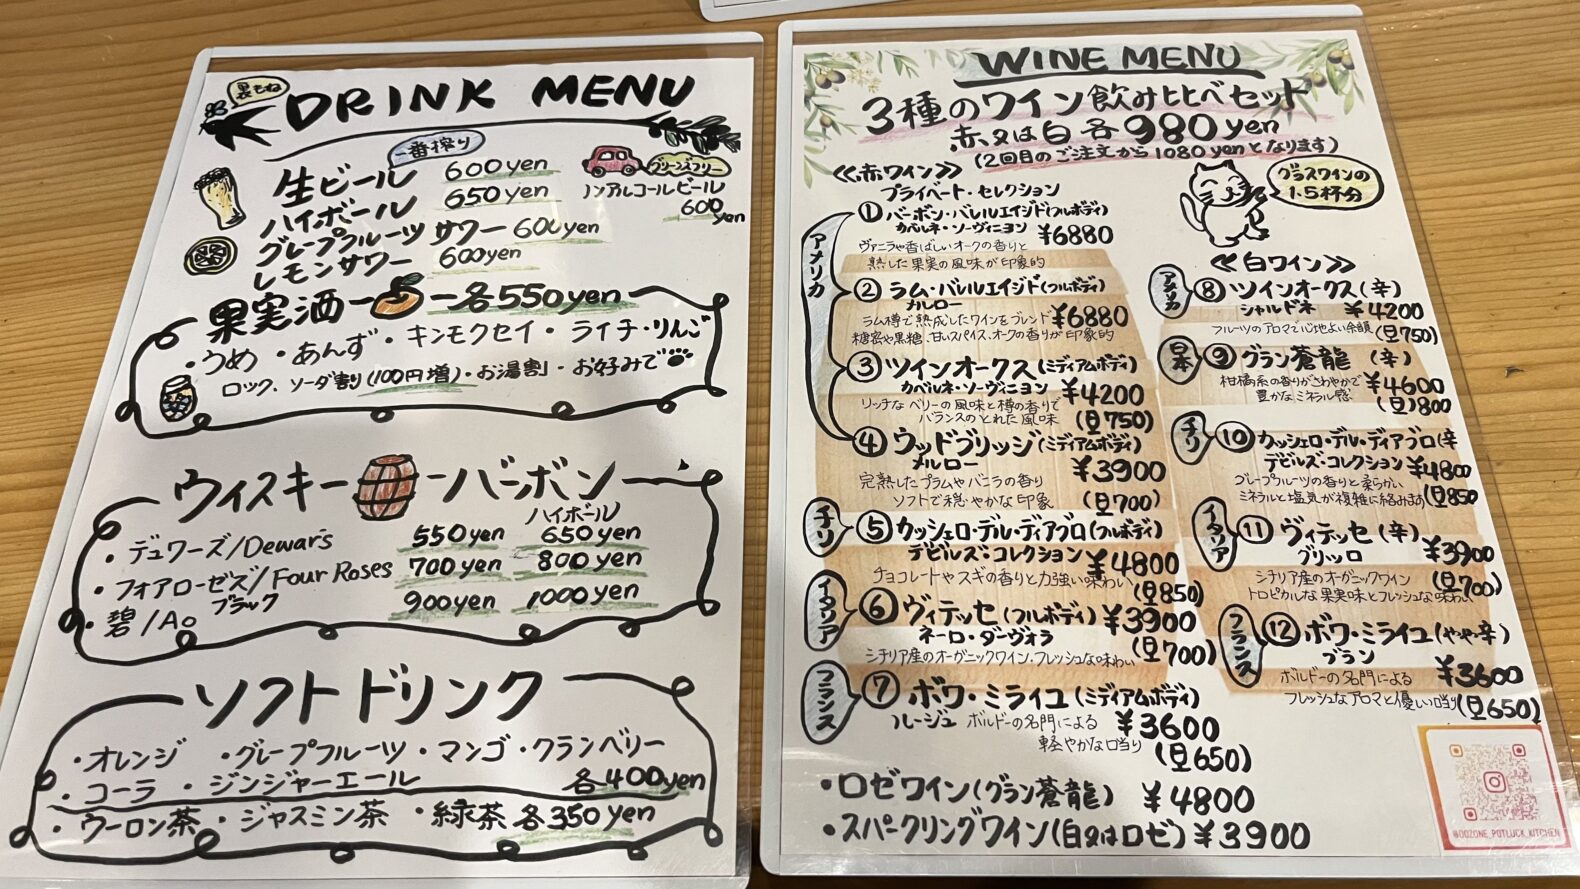 裏もね
DRINK MENU
一番搾り
生ビール 600yen
ハイボール 650yen
グレープフルーツサワー 600yen
レモンサワー 600yen
グリーンズフリー
ノンアルコールビール
600yen
果実酒 各550yen
・うめ・あんず・キンモクセイ・ライチ・りんご
ロック、ソーダ割り(100円増)・お湯割・お好みで
ウィスキー バーボン
ハイボール
・デュワーズ/Dewar's 550yen 650yen
・フォアローゼズ/Four Roses 700yen 800yen
ブラック
・碧/Ao 900yen 1000yen
ソフトドリンク
・オレンジ ・グレープフルーツ・マンゴ・クランベリー
・コーラ ・ジンジャーエール 各400yen
・ウーロン茶・ジャスミン茶 ・緑茶 各350yen
WINE MENU
3種のワイン飲み比べセット
赤又は白 各980yen
(2回目のご注文から1080yenとなります)
グラスワインの
1.5杯分
≪赤ワイン≫
プライベート・セレクション
アメリカ
① バーボン・バレルエイジド(フルボディ)
カベルネ・ソーヴィニヨン ¥6880
ヴァニラや香ばしいオークの香りと
熟した果実の風味が印象的
② ラム・バレルエイジド(フルボディ)
メルロー ¥6880
ラム樽で熟成したワインをブレンド
糖密や黒糖、甘いスパイス、オークの香りが印象的
③ ツインオークス(ミディアムボディ)
カベルネ・ソーヴィニヨン ¥4200
リッチなベリーの風味と樽の香りで
バランスのとれた風味 (旦750)
④ ウッドブリッジ(ミディアムボディ)
メルロー ¥3900
完熟したプラムやバニラの香り
ソフトで穏やかな印象 (旦700)
チリ
⑤ カッシェロ・デル・ディアブロ(フルボディ)
デビルズ・コレクション ¥4800
チョコレートやスギの香りと力強い味わい (旦850)
イタリア
⑥ ヴィテッセ(フルボディ) ¥3900
ネーロ・ダーヴォラ
シチリア産のオーガニックワイン、フレッシュな味わい (旦700)
フランス
⑦ ボワ・ミライユ(ミディアムボディ)
ルージュ ボルドーの名門による ¥3600
軽やかな口当り (旦650)
・ロゼワイン(グラン蒼龍) ¥4800
・スパークリングワイン(白又はロゼ) ¥3900
≪白ワイン≫
アメリカ
⑧ ツインオークス(辛)
シャルドネ ¥4200
フルーツのアロマで心地よい余韻 (旦750)
日本
⑨ グラン蒼龍(辛)
柑橘系の香りがさわやかで ¥4600
豊かなミネラル感 (旦)800
チリ
⑩ カッシェロ・デル・ディアブロ(辛
デビルズ・コレクション ¥4800
グレープフルーツの香りと柔らかい
ミネラルと塩気が複雑に絡みます (旦850
イタリア
⑪ ヴィテッセ(辛)
グリッロ ¥3900
シチリア産のオーガニックワイン (旦700)
トロピカルな果実味とフレッシュな味わい
フランス
⑫ ボワ・ミライユ(やや辛)
ブラン ¥3600
ボルドーの名門による
フレッシュなアロマと優しい口当り (旦650)
@OOZONE_POTLUCK_KITCHEN